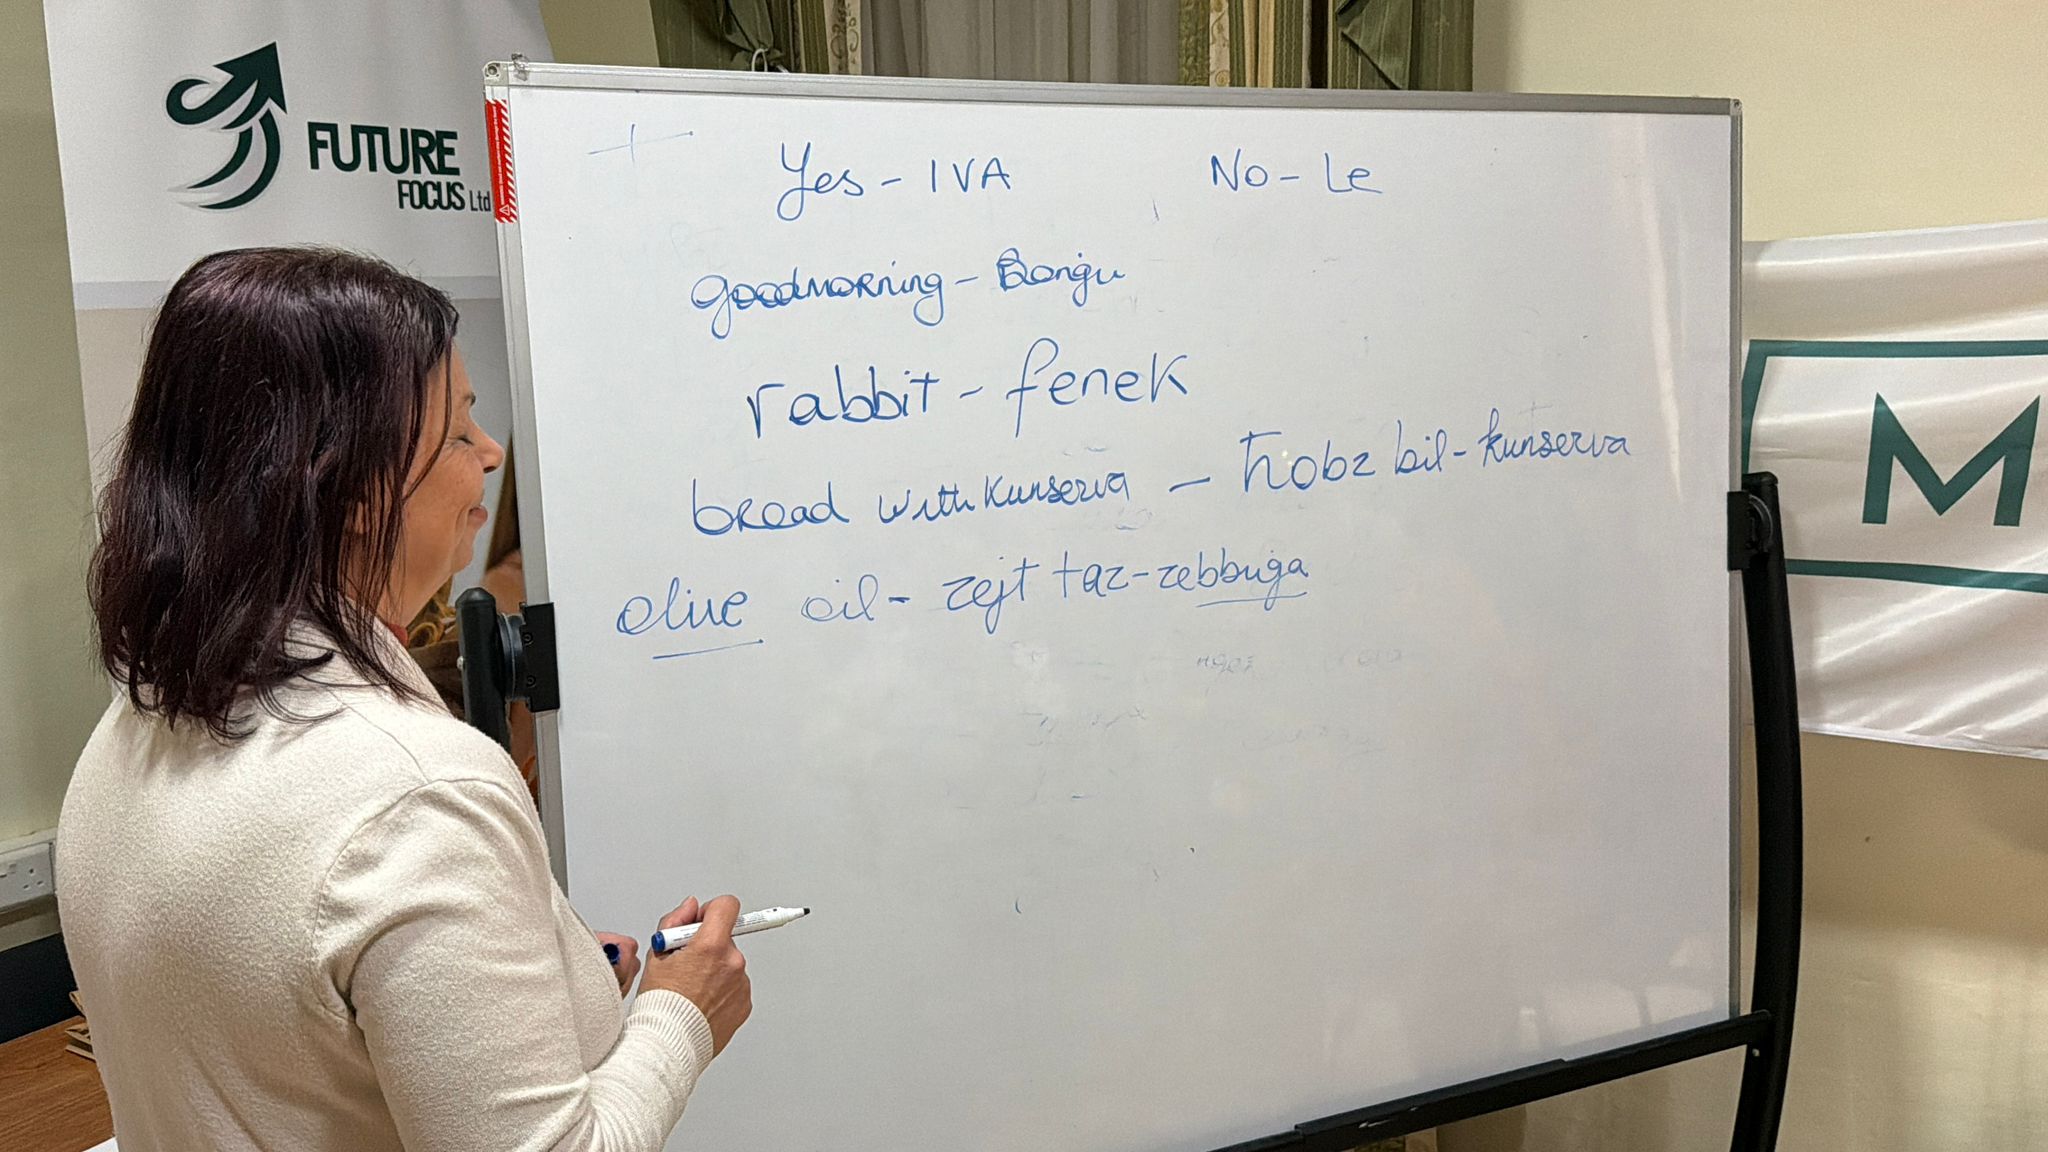 FUTURE
FOCUS Ltd
Yes - IVA No - Le
goodmorning - Bonġu
rabbit - fenek
bread with kunserva - ħobz bil-kunserva
olive oil - zejt taz-zebbuġa
M